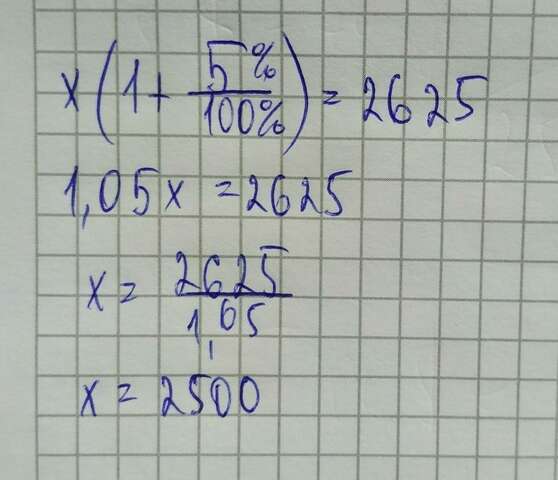 x(1+5%/100%)=2625
1,05x=2625
x=2625/1,05
x=2500